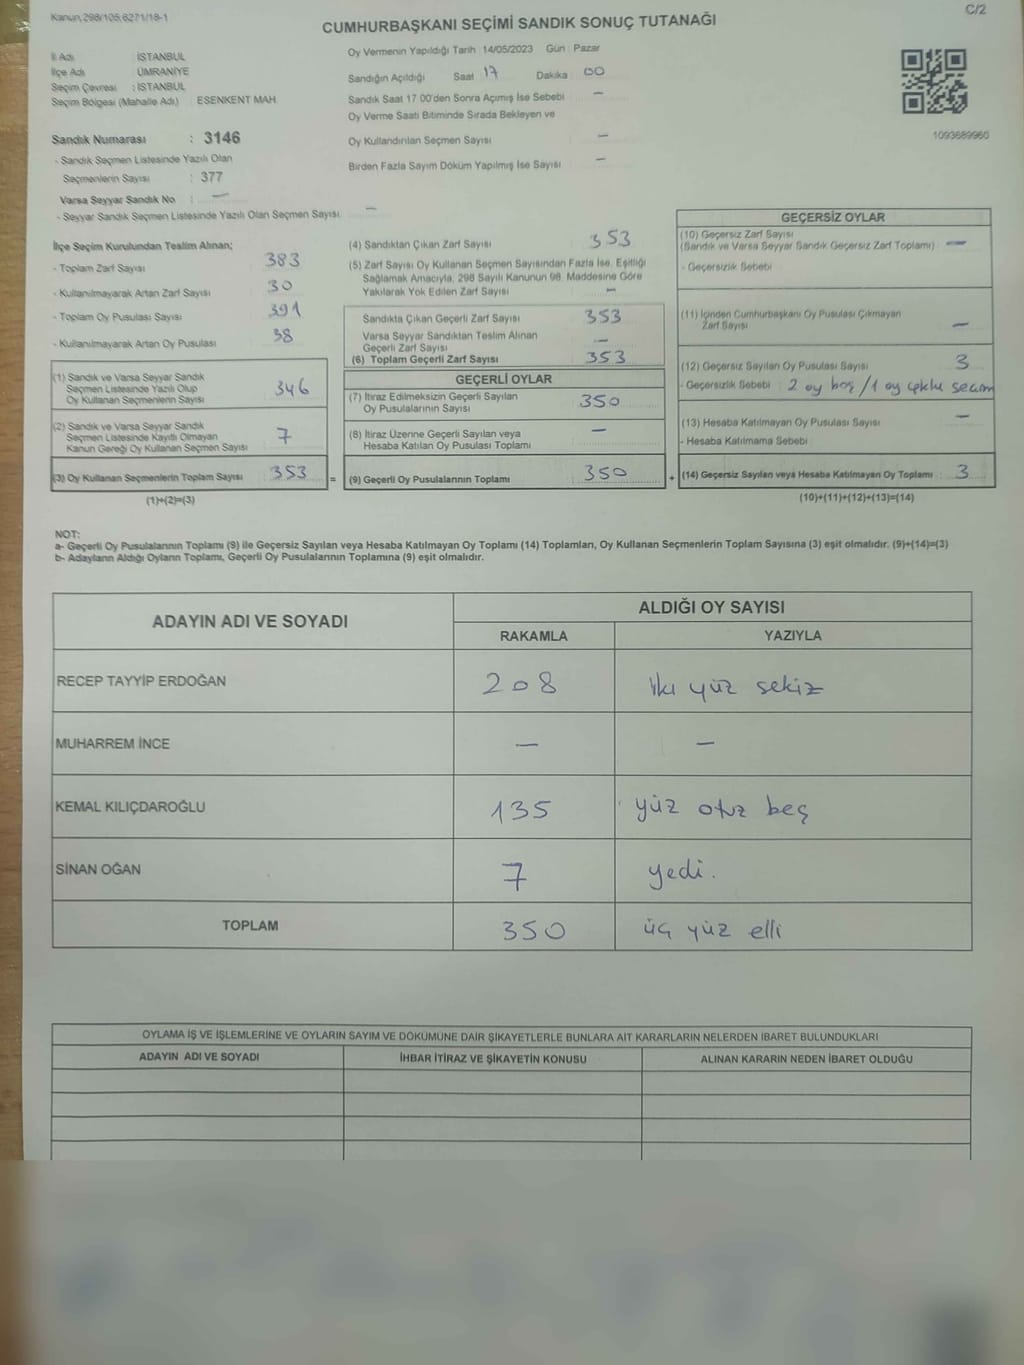 Kanun,298/105,6271/18-1
C/2
CUMHURBAŞKANI SEÇİMİ SANDIK SONUÇ TUTANAĞI
İl Adı : İSTANBUL
İlçe Adı : ÜMRANİYE
Seçim Çevresi : İSTANBUL
Seçim Bölgesi (Mahalle Adı) : ESENKENT MAH.
Sandık Numarası : 3146
- Sandık Seçmen Listesinde Yazılı Olan
Seçmenlerin Sayısı : 377
Varsa Seyyar Sandık No : —
- Seyyar Sandık Seçmen Listesinde Yazılı Olan Seçmen Sayısı: —
Oy Vermenin Yapıldığı Tarih : 14/05/2023 Gün : Pazar
Sandığın Açıldığı Saat : 17 Dakika : 00
Sandık Saat 17:00'den Sonra Açımış İse Sebebi : —
Oy Verme Saati Bitiminde Sırada Bekleyen ve
Oy Kullandırılan Seçmen Sayısı : —
Birden Fazla Sayım Döküm Yapılmış İse Sayısı : —
1093689960
İlçe Seçim Kurulundan Teslim Alınan;
- Toplam Zarf Sayısı : 383
- Kullanılmayarak Artan Zarf Sayısı : 30
- Toplam Oy Pusulası Sayısı : 391
- Kullanılmayarak Artan Oy Pusulası : 38
(1) Sandık ve Varsa Seyyar Sandık
Seçmen Listesinde Yazılı Olup
Oy Kullanan Seçmenlerin Sayısı : 346
(2) Sandık ve Varsa Seyyar Sandık
Seçmen Listesinde Kayıtlı Olmayan
Kanun Gereği Oy Kullanan Seçmen Sayısı : 7
(3) Oy Kullanan Seçmenlerin Toplam Sayısı : 353
(1)+(2)=(3)
(4) Sandıktan Çıkan Zarf Sayısı : 353
(5) Zarf Sayısı Oy Kullanan Seçmen Sayısından Fazla İse, Eşitliği
Sağlamak Amacıyla, 298 Sayılı Kanunun 98. Maddesine Göre
Yakılarak Yok Edilen Zarf Sayısı : —
Sandıkta Çıkan Geçerli Zarf Sayısı : 353
Varsa Seyyar Sandıktan Teslim Alınan
Geçerli Zarf Sayısı : —
(6) Toplam Geçerli Zarf Sayısı : 353
GEÇERLİ OYLAR
(7) İtiraz Edilmeksizin Geçerli Sayılan
Oy Pusulalarının Sayısı : 350
(8) İtiraz Üzerine Geçerli Sayılan veya
Hesaba Katılan Oy Pusulası Toplamı : —
= (9) Geçerli Oy Pusulalarının Toplamı : 350
GEÇERSİZ OYLAR
(10) Geçersiz Zarf Sayısı
(Sandık ve Varsa Seyyar Sandık Geçersiz Zarf Toplamı) : —
- Geçersizlik Sebebi :
(11) İçinden Cumhurbaşkanı Oy Pusulası Çıkmayan
Zarf Sayısı : —
(12) Geçersiz Sayılan Oy Pusulası Sayısı : 3
- Geçersizlik Sebebi : 2 oy boş / 1 oy çoklu seçim
(13) Hesaba Katılmayan Oy Pusulası Sayısı : —
- Hesaba Katılmama Sebebi :
+ (14) Geçersiz Sayılan veya Hesaba Katılmayan Oy Toplamı : 3
(10)+(11)+(12)+(13)=(14)
NOT:
a- Geçerli Oy Pusulalarının Toplamı (9) ile Geçersiz Sayılan veya Hesaba Katılmayan Oy Toplamı (14) Toplamları, Oy Kullanan Seçmenlerin Toplam Sayısına (3) eşit olmalıdır. (9)+(14)=(3)
b- Adayların Aldığı Oyların Toplamı, Geçerli Oy Pusulalarının Toplamına (9) eşit olmalıdır.
ADAYIN ADI VE SOYADI ALDIĞI OY SAYISI
RAKAMLA YAZIYLA
RECEP TAYYİP ERDOĞAN 208 iki yüz sekiz
MUHARREM İNCE — —
KEMAL KILIÇDAROĞLU 135 yüz otuz beş
SİNAN OĞAN 7 yedi.
TOPLAM 350 üç yüz elli
OYLAMA İŞ VE İŞLEMLERİNE VE OYLARIN SAYIM VE DÖKÜMÜNE DAİR ŞİKAYETLERLE BUNLARA AİT KARARLARIN NELERDEN İBARET BULUNDUKLARI
ADAYIN ADI VE SOYADI İHBAR İTİRAZ VE ŞİKAYETİN KONUSU ALINAN KARARIN NEDEN İBARET OLDUĞU